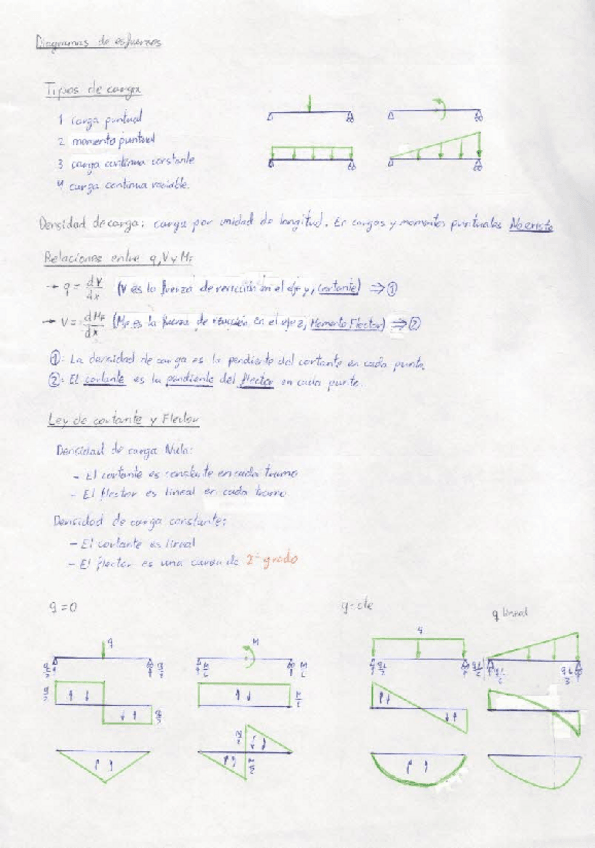 Diagramas de esfuerzos
Tipos de carga
1 carga puntual
2 momento puntual
3 carga continua constante
4 carga continua variable.
Densidad de carga: carga por unidad de longitud. En cargas y momentos puntuales No existe
Relaciones entre q, V y MF
→ q = dV/dx (V es la fuerza de reacción en el eje y, Cortante) ⇒ ①
→ V = dMF/dx (MF es la fuerza de reacción en el eje z, Momento Flector) ⇒ ②
①: La densidad de carga es la pendiente del cortante en cada punto
②: El cortante es la pendiente del flector en cada punto.
Ley de cortante y Flector
Densidad de carga Nula:
- El cortante es constante en cada tramo
- El flector es lineal en cada tramo
Densidad de carga constante:
- El cortante es lineal
- El flector es una curva de 2º grado
q=0 q=cte q lineal
q M q
q/2 q/2 M/L M/L
q/2 q/2 M/L
M/2 M/2